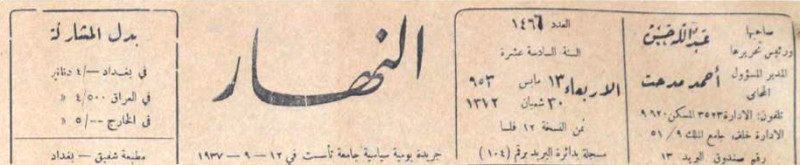 صاحبها
ورئيس تحريرها
عبد الله حسين
المدير المسؤول
أحمد مدحت
المحامي
تلفون: الادارة ٣٥٢٣ المسكن ٩٦٢٠
الادارة خلف جامع الملك ٩ / ٥١
رقم صندوق البريد ١٣
العدد ١٤٦٦
السنة السادسة عشرة
الاربعاء ١٣ مايس ٩٥٣
٣٠ شعبان ١٣٧٢
ثمن النسخة ١٢ فلسا
مسجلة بدائرة البريد برقم (١٠٤)
النهار
جريدة يومية سياسية جامعة تأسست في ١٢ - ٩ - ١٩٣٧
بدل المشاركة
في بغداد -/٤ دنانير
في العراق ٤/٥٠٠ «
في الخارج -/٥ «
مطبعة شفيق - بغداد